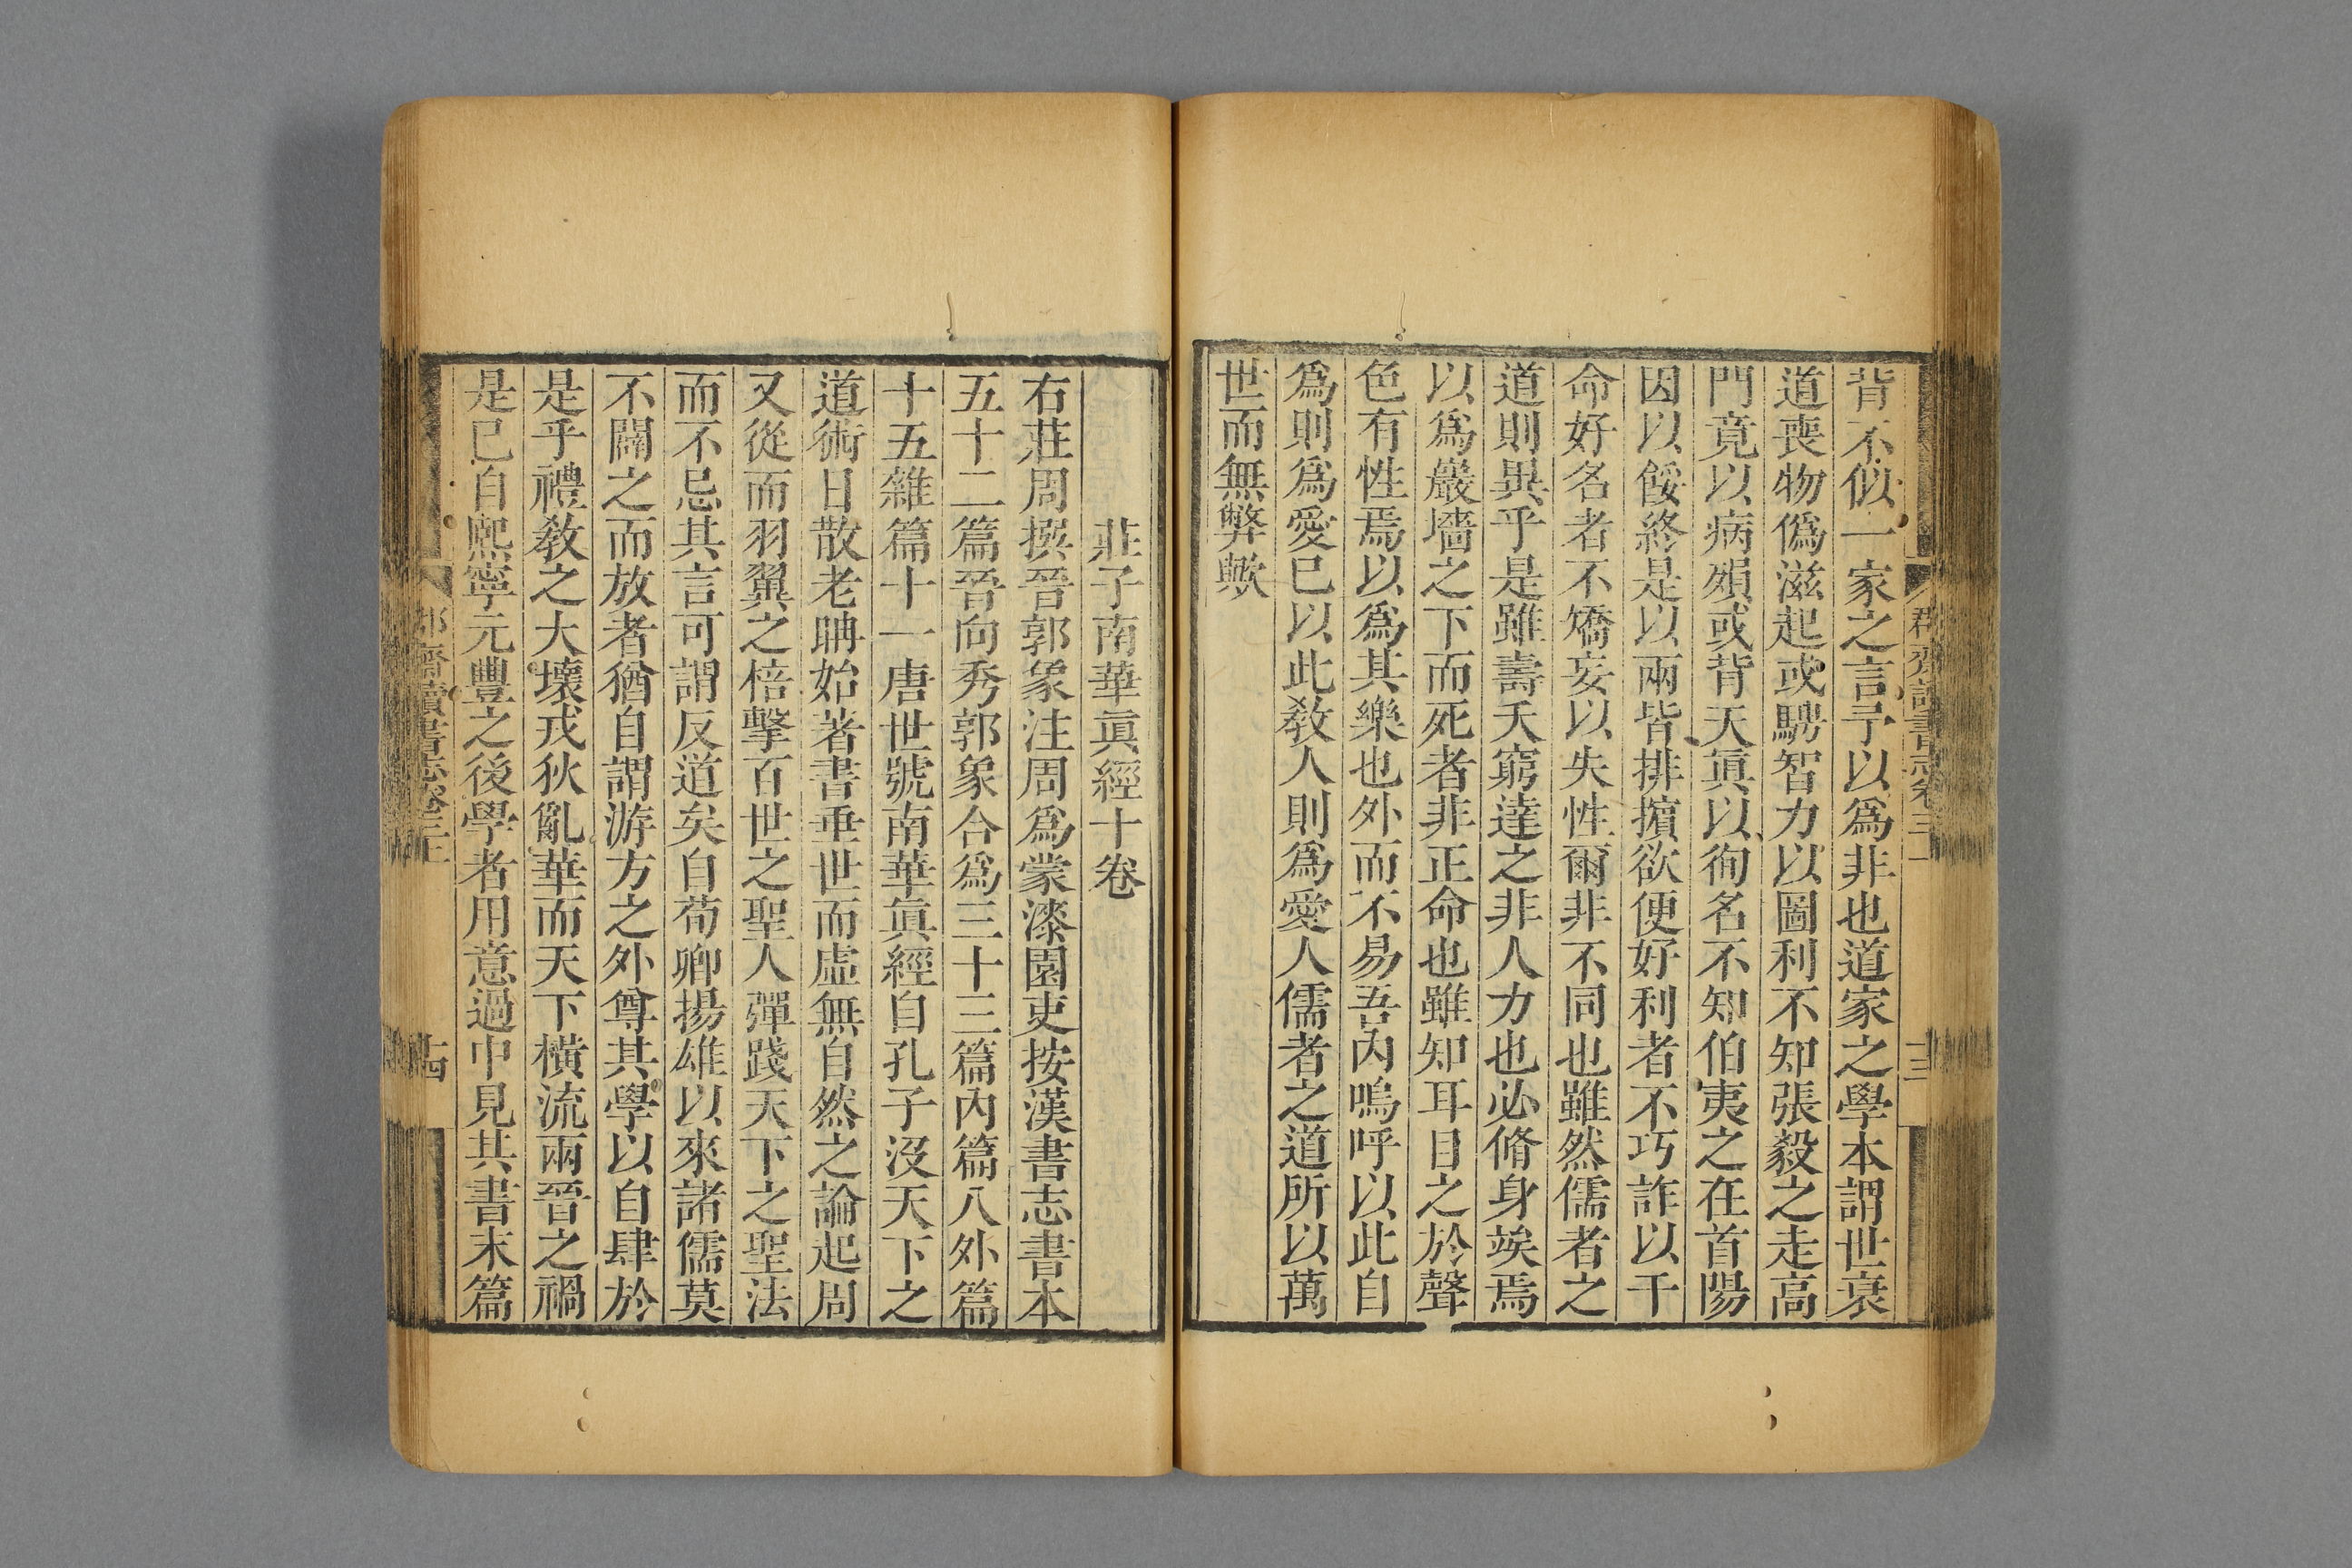 背不似一家之言予以爲非也道家之學本謂世衰
道喪物僞滋起或騁智力以圖利不知張毅之走高
門竟以病殞或背天眞以徇名不知伯夷之在首陽
因以餒終是以兩皆排擯欲使好利者不巧詐以干
命好名者不矯妄以失性爾非不同也雖然儒者之
道則異乎是雖壽夭窮達之非人力也必脩身竢焉
以爲巖墻之下而死者非正命也雖知耳目之於聲
色有性焉以爲其樂也外而不易吾內嗚呼以此自
爲則爲愛已以此敎人則爲愛人儒者之道所以萬
世而無弊歟
莊子南華眞經十卷
右莊周撰晉郭象注周爲蒙漆園吏按漢書志書本
五十二篇晉向秀郭象合爲三十三篇內篇八外篇
十五雜篇十一唐世號南華眞經自孔子沒天下之
道術日散老聃始著書垂世而虛無自然之論起周
又從而羽翼之棓擊百世之聖人殫踐天下之聖法
而不忌其言可謂反道矣自荀卿揚雄以來諸儒莫
不闢之而放者猶自謂游方之外尊其學以自肆於
是乎禮敎之大壞戎狄亂華而天下橫流兩晉之禍
是已自熙寧元豐之後學者用意過中見其書末篇
郡齋讀書志卷三上
十四